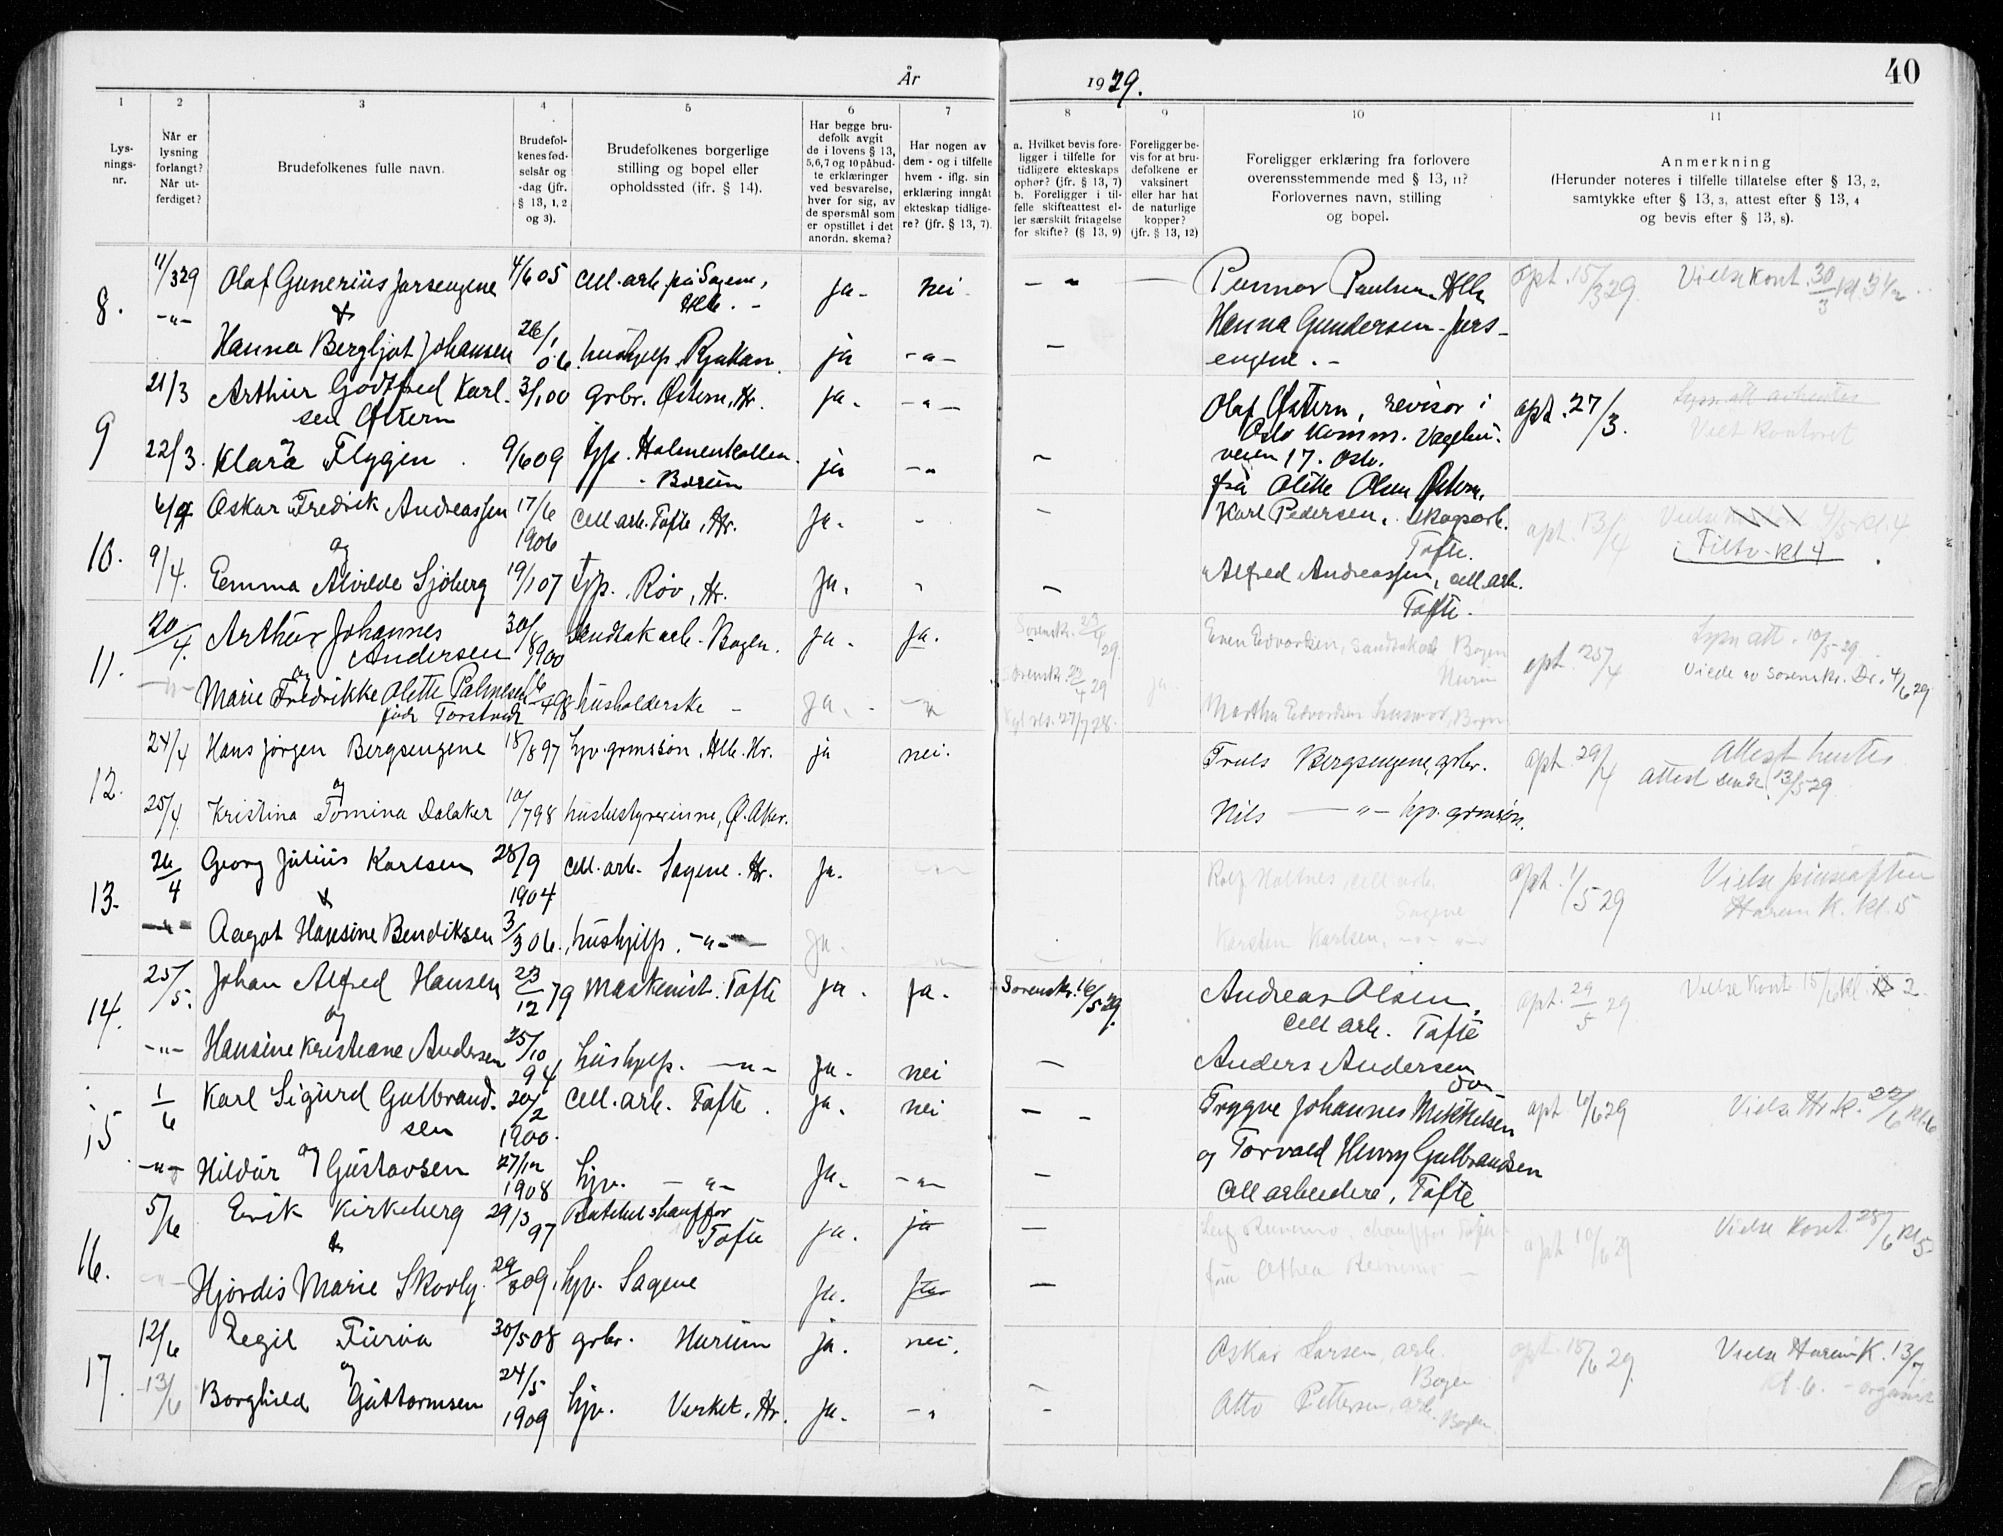 År 1929.
40
1 2 3 4 5 6 7 8 9 10 11
Lys-
nings-
nr.
Når er
lysning
forlangt?
Når ut-
ferdiget?
Brudefolkenes fulle navn.
Brudefol-
kenes fød-
selsår og
-dag (jfr.
§ 13, 1, 2
og 3).
Brudefolkenes borgerlige
stilling og bopel eller
opholdssted (ifr. § 14).
Har begge bru-
defolk avgit
de i lovens § 13,
5,6,7 og 10 påbud-
te erklæringer
ved besvarelse,
hver for sig, av
de spørsmål som
er opstillet i det
anordn. skema?
Har nogen av
dem - og i tilfelle
hvem - iflg. sin
erklæring inngåt
ekteskap tidlige-
re? (jfr. § 13, 7).
a. Hvilket bevis fore-
ligger i tilfelle for
tidligere ekteskaps
ophør? (jfr. § 13, 7)
b. Foreligger i til-
felle skifteattest el-
ler særskilt fritagelse
for skifte? (§ 13, 9)
Foreligger be-
vis for at bru-
defolkene er
vaksinert
eller har hat
de naturlige
kopper?
(jfr. § 13, 12)
Foreligger erklæring fra forlovere
overensstemmende med § 13, 11?
Forlovernes navn, stilling
og bopel.
Anmerkning
(Herunder noteres i tilfelle tillatelse efter § 13, 2,
samtykke efter § 13, 3, attest efter § 13, 4
og bevis efter § 13, 8).
8. 11/3 29 Olaf Gunerius Jarsengene 4/6 05 Cell. arb. på Sagene, ja- nei - - Paulsen Hlb. opt. 15/3 29 Vielse Kont. 30/3 kl. 3 1/2
& Hlb. - Hanna Gundersen - Jers-
-"- Hanna Bergljot Johansen 26/1 06. hushjelp Rjukan. ja -"- - engene. -
9 21/3 Arthur Godtfred Karl- 3/1 00 Grbr. Østern, Hr. ja. -"- Olaf Østern, revisor i opt. 27/3. Lysn. att. avhentes
sen Østern Oslo Komm. Vet Kontoret
22/3. og Klara Flygin 9/6 09 tjp. Holmenkollen. ja -" - veien 17. Oslo.
- Bærum fru Alette Olsen Østern.
10. 6/4 Oskar Fredrik Andreassen 17/6 1906 Cell arb. Tofte, Hr. Ja. - - Karl Pedersen, skogsarb. opt. 13/4 Vielse 4/5 kl. 4
og Tofte. i Filtv. kl 4
9/4. Emma Alvilde Sjøberg 19/1 07 tjp. Røv, Hr. Ja. " - Alfred Andreassen, cell arb.
Tofte.
11. 20/4. Arthur Johannes 30/8 1900 Sandtak arb. Bogen. Ja. Ja. Sorenskr. 23/4 29. Even Edvardsen, sandtak arb. Bogen opt. 25/4 Lysn att. 10/5 29
Andersen Hurum Viede av Sorenskr. Dr. 4/6 29
-"- og Marie Fredrikke Olette Palmesen husholderske - Ja. -"- Sorenskr. 23/4 29 ja. Martha Edvardsen husmor, Bogen
født Torstved Kgl res. 27/7 28.
12. 24/4 Hans Jørgen Bergsengene 18/8 97 hjv. grmssøn, Hlb. Hr. ja nei. Truls Bergsengene, grbr. opt. 29/4 Attest hentes
og attest sendt 13/5 29
25/4 Kristina Tomina Dalaker 10/7 98 husbestyrerinne, Ø. Aker. Nils -"- hjv. grmsøn.
13. 26/4 Georg Julius Karlsen 28/9 1904 Cell. arb. Sagene. Hr. Ja. -"- Rolf Holtnes, cell arb. opt. 1/5 29 Vielse pinseaften
& Sagene Hurum K. kl. 5
-"- Aagot Hansine Bendiksen 3/3 06. hushjelp. -"- Ja. -"- Karsten Karlsen, -"- -"-
14. 25/5. Johan Alfred Hansen 23/12 79 Maskinist. Tofte ja. ja. Sorenskr. 16/5 29. Andreas Olsen, opt. 29/5 29 Vielse Kont. 15/6 kl. 2
og Cell arb. Tofte
-"- Hansine Kristiane Andersen 25/10 94 hushjelp. -"- Ja. nei - Anders Andersen
do
15 1/6 Karl Sigurd Gulbrand- 20/2 1900. Cell. arb. Tofte. Ja. nei - - Trygve Johannes Mikkelsen opt. 10/6 29 Vielse Hr. K. 22/6 kl. 6
sen og Torvald Henry Gulbrandsen
-"- Hildur og Gustavsen 27/12 1908 hjv. -"- Ja. -"- - Cell arbeidere, Tofte
16. 5/6 Erik Kirkeberg 29/3 97 Rutebilshauffør ja. ja - chauffør opt 10/6 29 Vielse Kont. 28/6 kl 5
& Tofte
-"- Hjørdis Marie Skovly. 29/8 09. hjv. Sagene Ja. Ja - fru Othea -
17. 12/6 Eegil Furua 30/5 08 grbr. Hurum ja. nei. Oskar Larsen, arb. opt. 18/6 29. Vielse Hurum K. 13/7
og Bogen kl. 6. - organist
13/6 Borghild Guttormsen 24/5 1909 hjv. Verket, Hr. Ja. -" - Otto Pettersen, arb.
Bogen